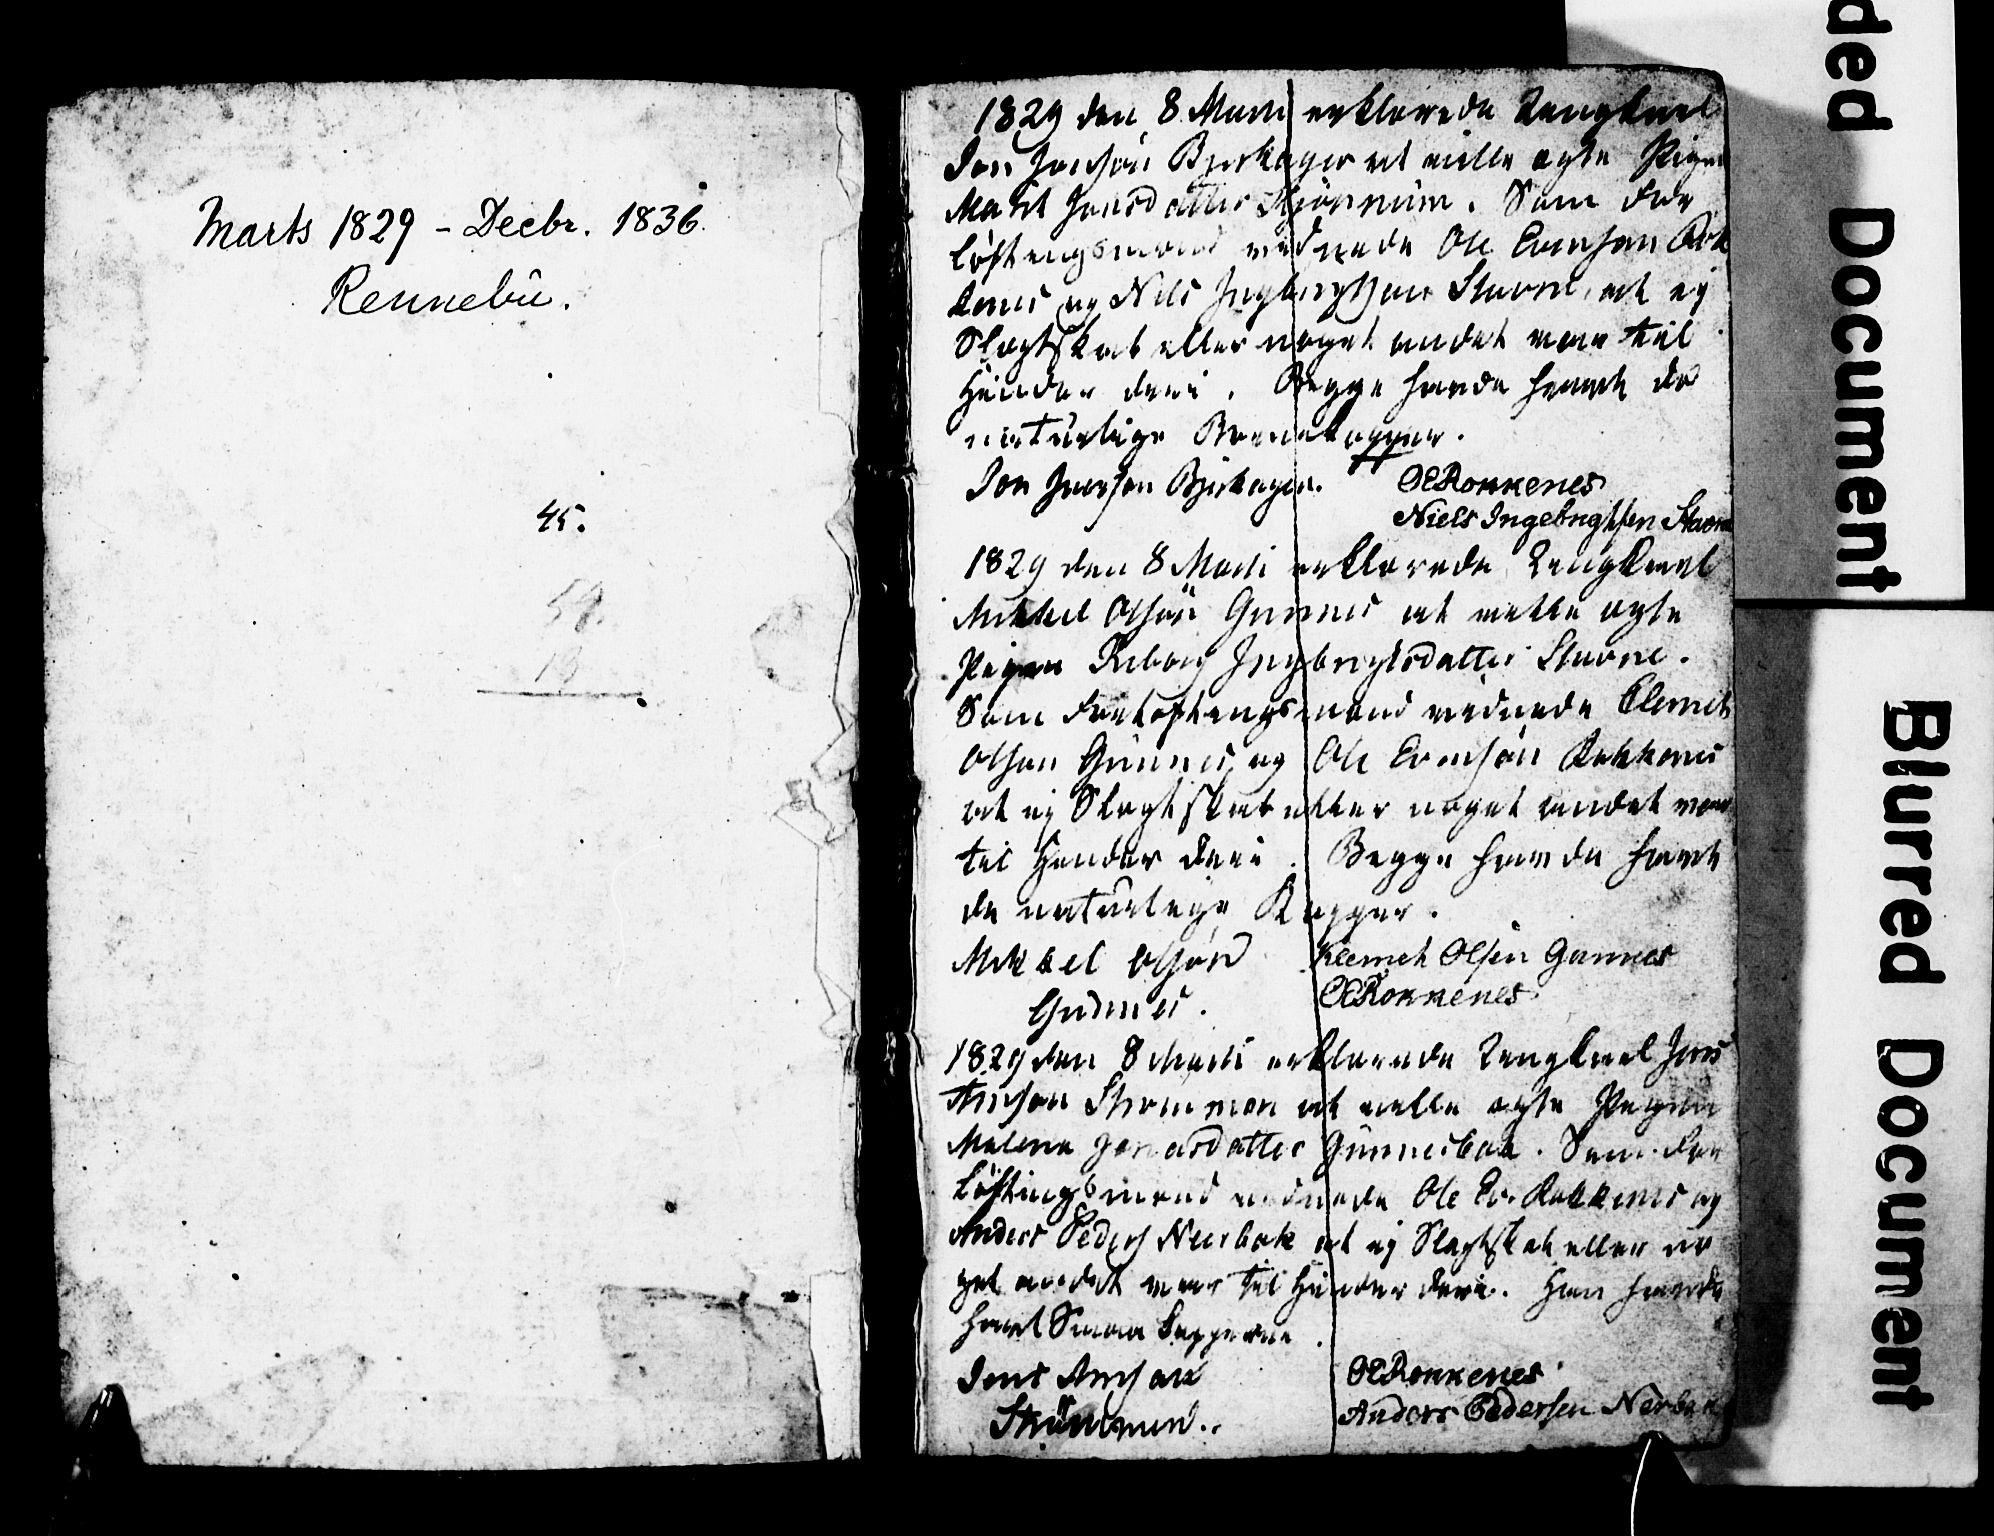 Marts 1829 - Decbr. 1836.
Rennebu.
45.
59.
13
1829 den 8 Marti erklærede Ungkarl
Jon Jonsøn Bjerkager at ville ægte Pigen
Marit Jonsdatter. Som For
løftningsmænd vidnede Ole Evensøn Rok
kenes og Nils Ingebrigtsøn Stavne, at ej
Slægtskab eller noget andet var til
Hinder deri. Begge havde havt de
naturlige Børnekopper.
Jon Bjerkager. OERokkenes
Niels Ingebrigtsen Stavne
1829 den 8 Marti erklærede Ungkarl
Mikkel Olsøn Gunnes at ville ægte
Pigen Ingebrigtsdatter Stavne.
Som Forløftningsmænd vidnede Clemet
Olsøn Gunnes og Ole Evensøn Rokkenes
at ej Slægtskab eller noget andet var
til Hinder deri. Begge havde havt
de naturlige Kopper.
Mikkel Olsøn Kleemet Olsen Gunnes
Gunnes. OERokkenes
1829 den 8 Marti erklærede Ungkarl Jens
Arnsøn Strømmen at ville ægte Pigen
Malena Jonasdatter Gunnesbak. Som For
løftningsmænd vidnede Ole Ev. Rokkenes og
Anders Peders Neerbak at ej Slægtskab eller no
get andet var til Hinder deri. Han havde
havt Smaa kopperne.
Jens Arnsøn OERokkenes
Strømmen. Anders Pedersen Nerbak
ded Document
Blurred Document